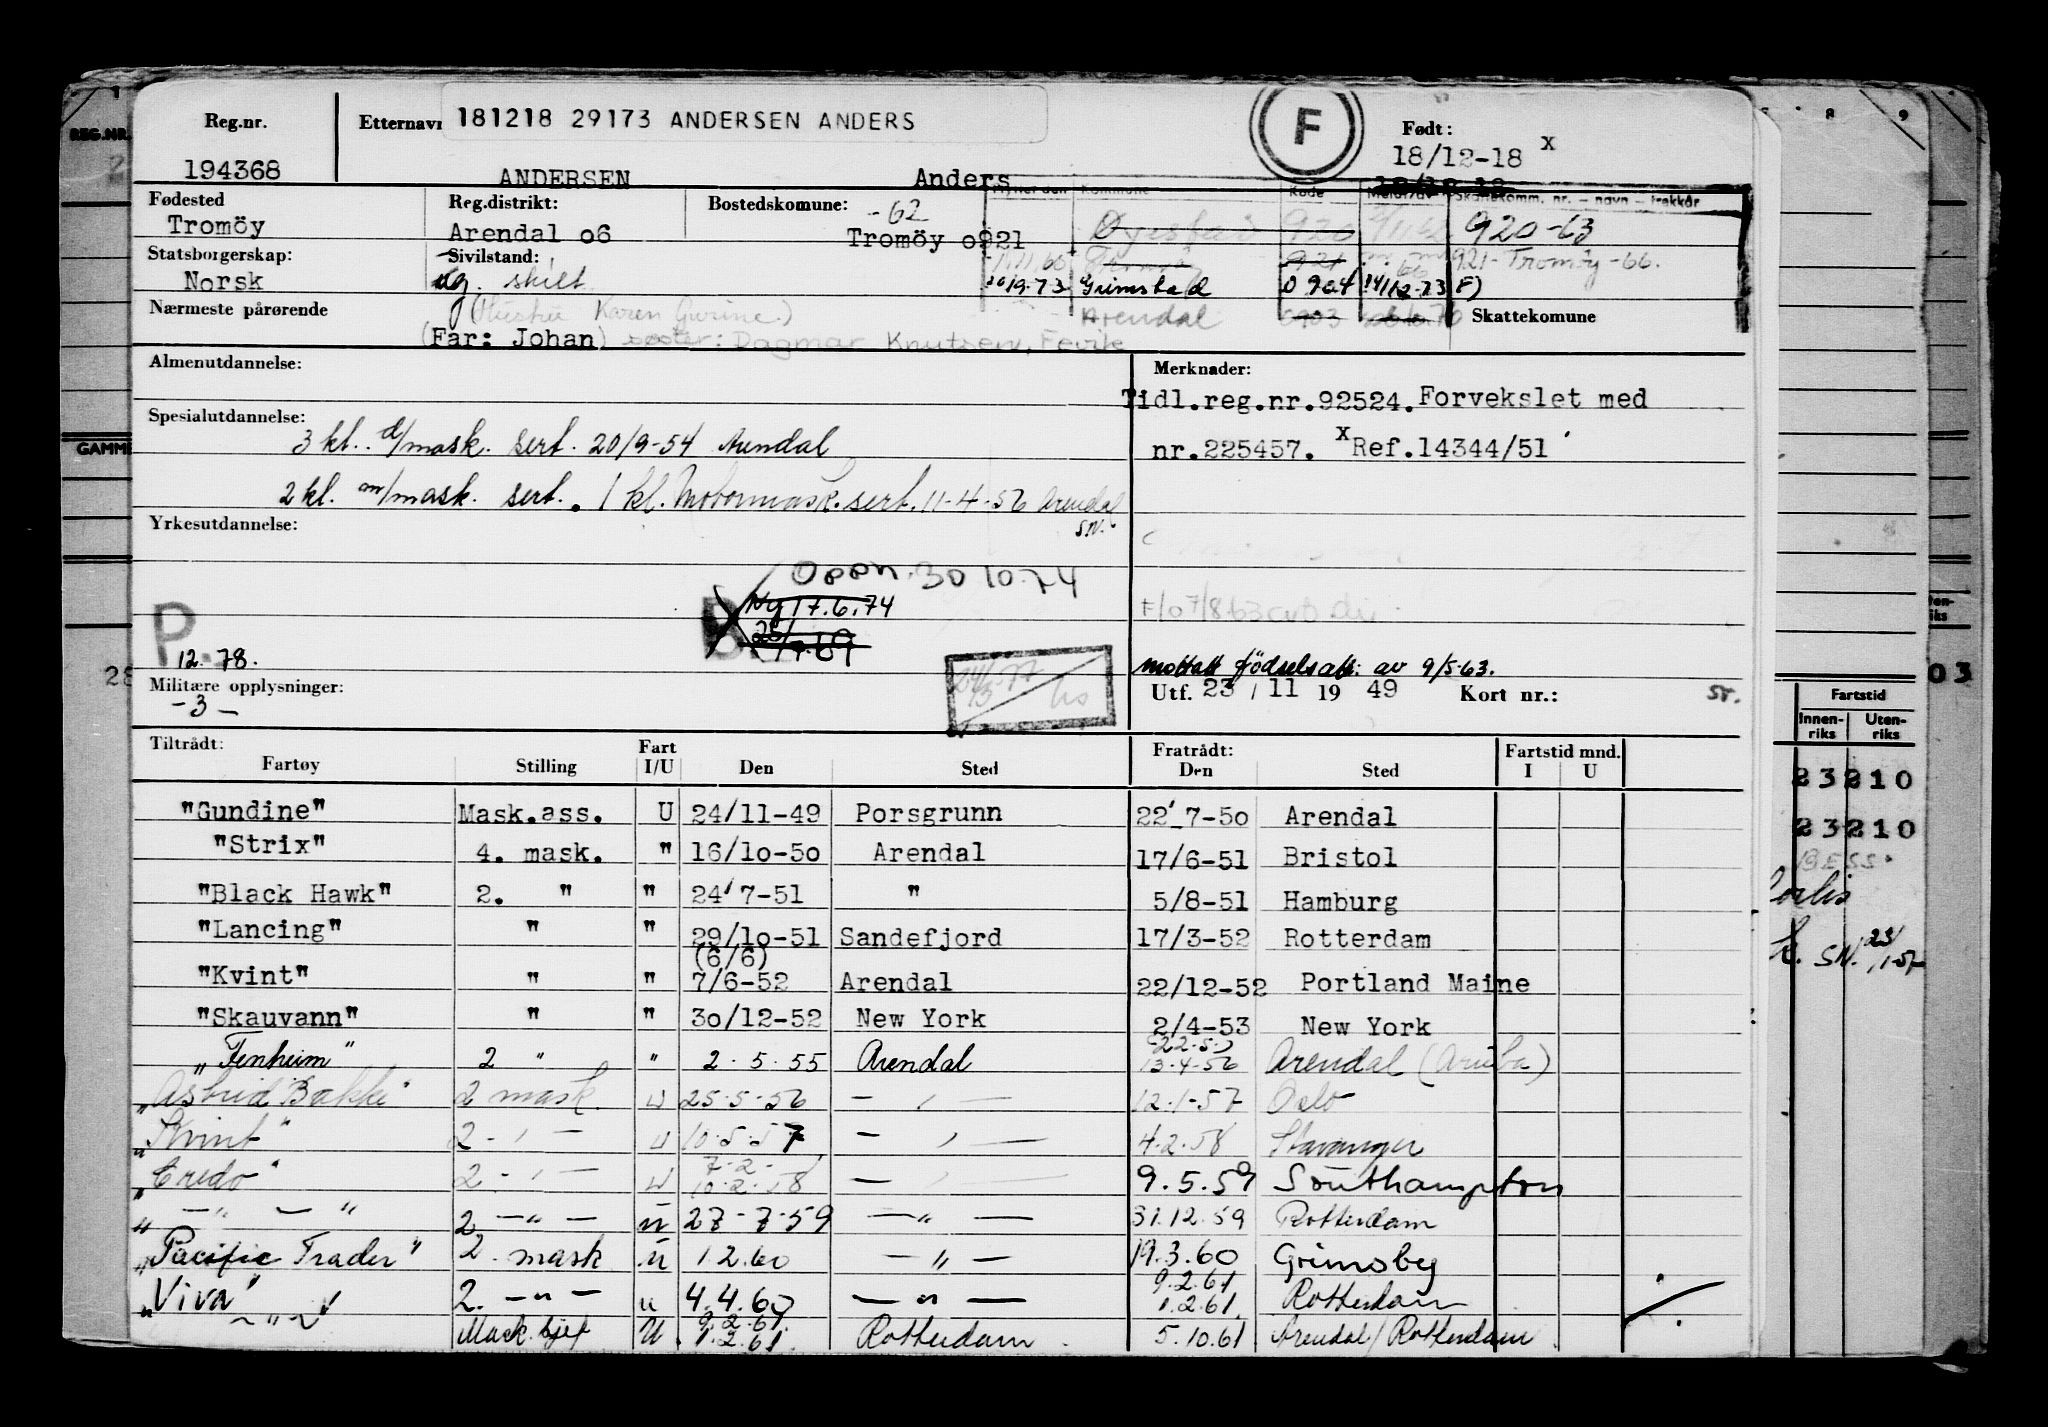 Reg.nr.
Etternavn 181218 29173 ANDERSEN ANDERS
F
Født:
18/12-18 x
194368 ANDERSEN Anders
Fødested
Tromöy
Reg.distrikt:
Arendal o6
Bostedskomune: -62
Tromöy o921
Kommune Kode Skattekomm. nr. — navn — trekkår
920 920-63
Statsborgerskap:
Norsk
Sivilstand:
ug. skilt
921 921-Tromöy-66.
9-73 Grimstad 0904 14/12-73 F)
Nærmeste pårørende
(Hustru Karen Gurine.)
(Far: Johan) søster: Dagmar Knutsen, Fevik
Arendal 0903
Skattekomune
Almenutdannelse:
Merknader:
Tidl.reg.nr.92524. Forvekslet med
nr.225457. xRef.14344/51
Spesialutdannelse:
3 kl. d/mask. sert. 20/9-54 Arendal
2 kl. m/mask. sert. 1 kl. Motormask.sert. 11-4-56 Arendal
S.N.
Yrkesutdannelse:
Oppn. 30 10.74
Ny 17.6.74
B.
P.
12. 78.
mottatt födselsatt: av 9/5-63.
Militære opplysninger:
-3-
Utf. 23 / 11 19 49 Kort nr.:
Tiltrådt:
Fartøy Stilling Fart I/U Den Sted
Fratrådt:
Den Sted
Fartstid mnd.
I U
"Gundine" Mask.ass. U 24/11-49 Porsgrunn 22/7-50 Arendal
"Strix" 4. mask. " 16/10-50 Arendal 17/6-51 Bristol
"Black Hawk" 2. " " 24/7-51 " 5/8-51 Hamburg
"Lancing" " " 29/10-51 Sandefjord 17/3-52 Rotterdam
(6/6)
"Kvint" " " 7/6-52 Arendal 22/12-52 Portland Maine
"Skauvann" " " 30/12-52 New York 2/4-53 New York
"Fenheim" 2 " " 2.5.55 Arendal 13.4.56 Arendal (Aruba)
"Astrid Bakke" 2 mask. u 25.5.56 — " — 12.1-57 Oslo
"Kvint" 2 - " - u 10.5.57 — " — 4.2.58 Stavanger
7-2-
"Credo" 2 - " - u 10.2.58 — 9.5.59 Southampton
" — " — " 2 — " — u 27-7-59 — " — 31.12.59 Rotterdam
"Pacific Trader" 2. mask u 1.2.60 — " — 19.3.60 Grimsby
9.2.61
"Viva" 2. — " — u 4.4.60 — " — 1.2.61 Rotterdam
9.2.61
— " — Mask.bjet U 1.2.61. Rotterdam 5.10.61 Arendal/Rotterdam
REG.NR.
GAMME
28
8 9
03
Fartstid
Innen-riks Uten-riks
23 210
23 210
S.N. 23/1-57